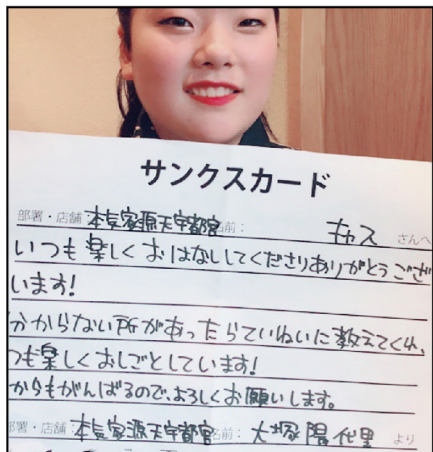 サンクスカード
部署・店舗：本気家源天宇都宮 名前： キャス さんへ
いつも楽しくおはなししてくださりありがとうござ
います！
分からない所があったらていねいに教えてくれ、
つも楽しくおしごとしています！
からもがんばるので、よろしくお願いします。
部署・店舗：本気家源天宇都宮 名前： 大塚陽代里 より